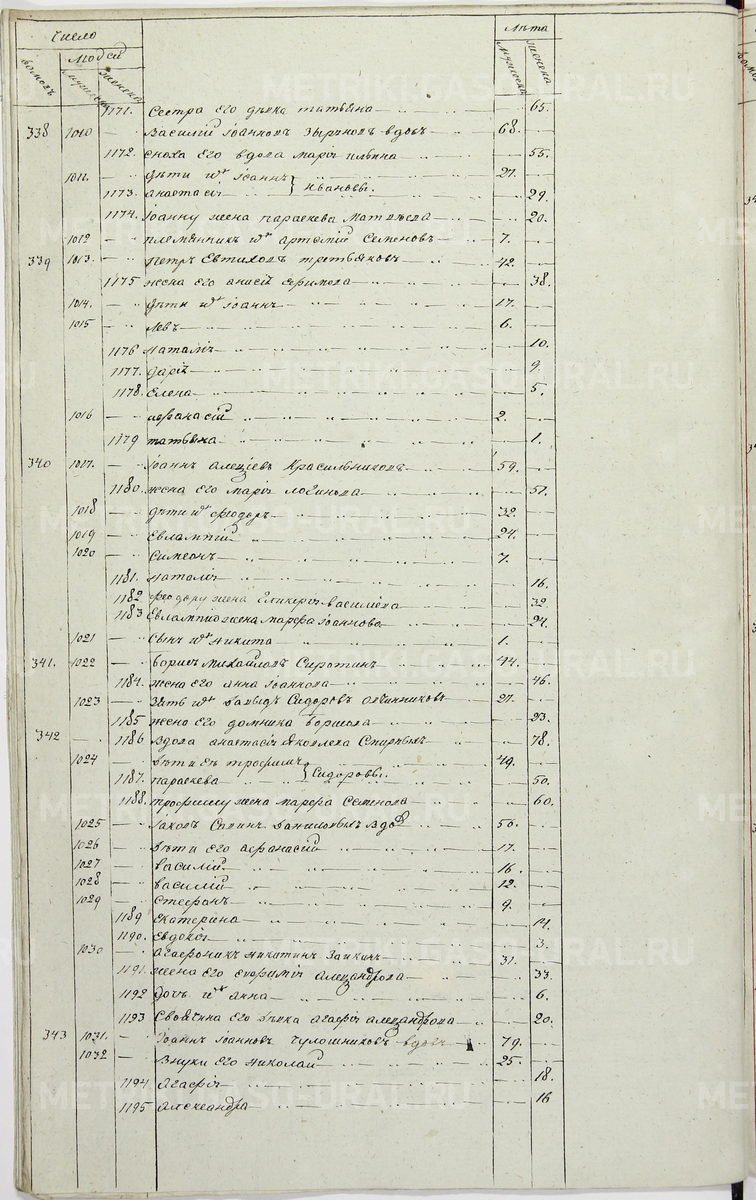 Число
Людей
Лѣта
домовъ мужеска женска мужеска женска
1171. Сестра его дѣвка татьяна 65.
338 1010 Василій Іоанновъ Зыряновъ вдовъ 68.
1172. сноха его вдова марія 55.
1011. дѣти ея Іоаннъ 27.
1173. анастасія } Ивановы. 29.
1174. Іоанну жена параскева матвѣева 20.
1012 племянникъ артемій Семеновъ 7.
339 1013. петръ Евтиховъ третьяковъ 42.
1175 жена его анисія ефимова 38.
1014. дѣти ихъ Іоаннъ 17.
1015 левъ 6.
1176 наталія 10.
1177. дарія 9.
1178. Елена 5.
1016 афанасій 2.
1179 татьяна 1.
340 1017. Іоаннъ алексіевъ Красильниковъ 59.
1180. жена его марія логинова 51.
1018 дѣти ихъ феодоръ 32.
1019 Евлампій 24.
1020 Симеонъ 7.
1181. наталія 16.
1182 феодору жена гликерія василіева 32
1183 Евлампію жена марфа Іоаннова 24.
1021 сынъ ихъ никита 1.
341. 1022 борисъ михайловъ Сиротинъ 44.
1184. жена его анна Іоаннова 46.
1023 зять ихъ давыдъ Сидоровъ Овчинниковъ 27.
1185 жена его домника борисова 23.
342 1186 вдова анастасія Яковлева 78.
1024 дѣти ея трофимъ 49.
1187. параскева } Сидоровы. 50.
1188. трофиму жена марфа Семенова 60.
1025 Іаковъ вдов 56.
1026 дѣти его афанасій 17.
1027 василій 16.
1028 василій 12.
1029 Стефанъ 9.
1189 Екатерина 14.
1190. Евдокія 3.
1030 агафоникъ никитинъ Заикинъ 31.
1191. жена его евфимія александрова 33
1192 дочь ихъ анна 6.
1193 Своячина его дѣвка агафія александрова 20.
343 1031. Іоаннъ Іоанновъ Чулошниковъ вдовъ 79.
1032 внуки его николай 25.
1194 агафія 18.
1195 александра 16